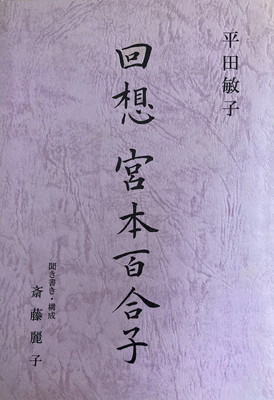 平田敏子
回想 宮本百合子
聞き書き・構成
斎藤麗子